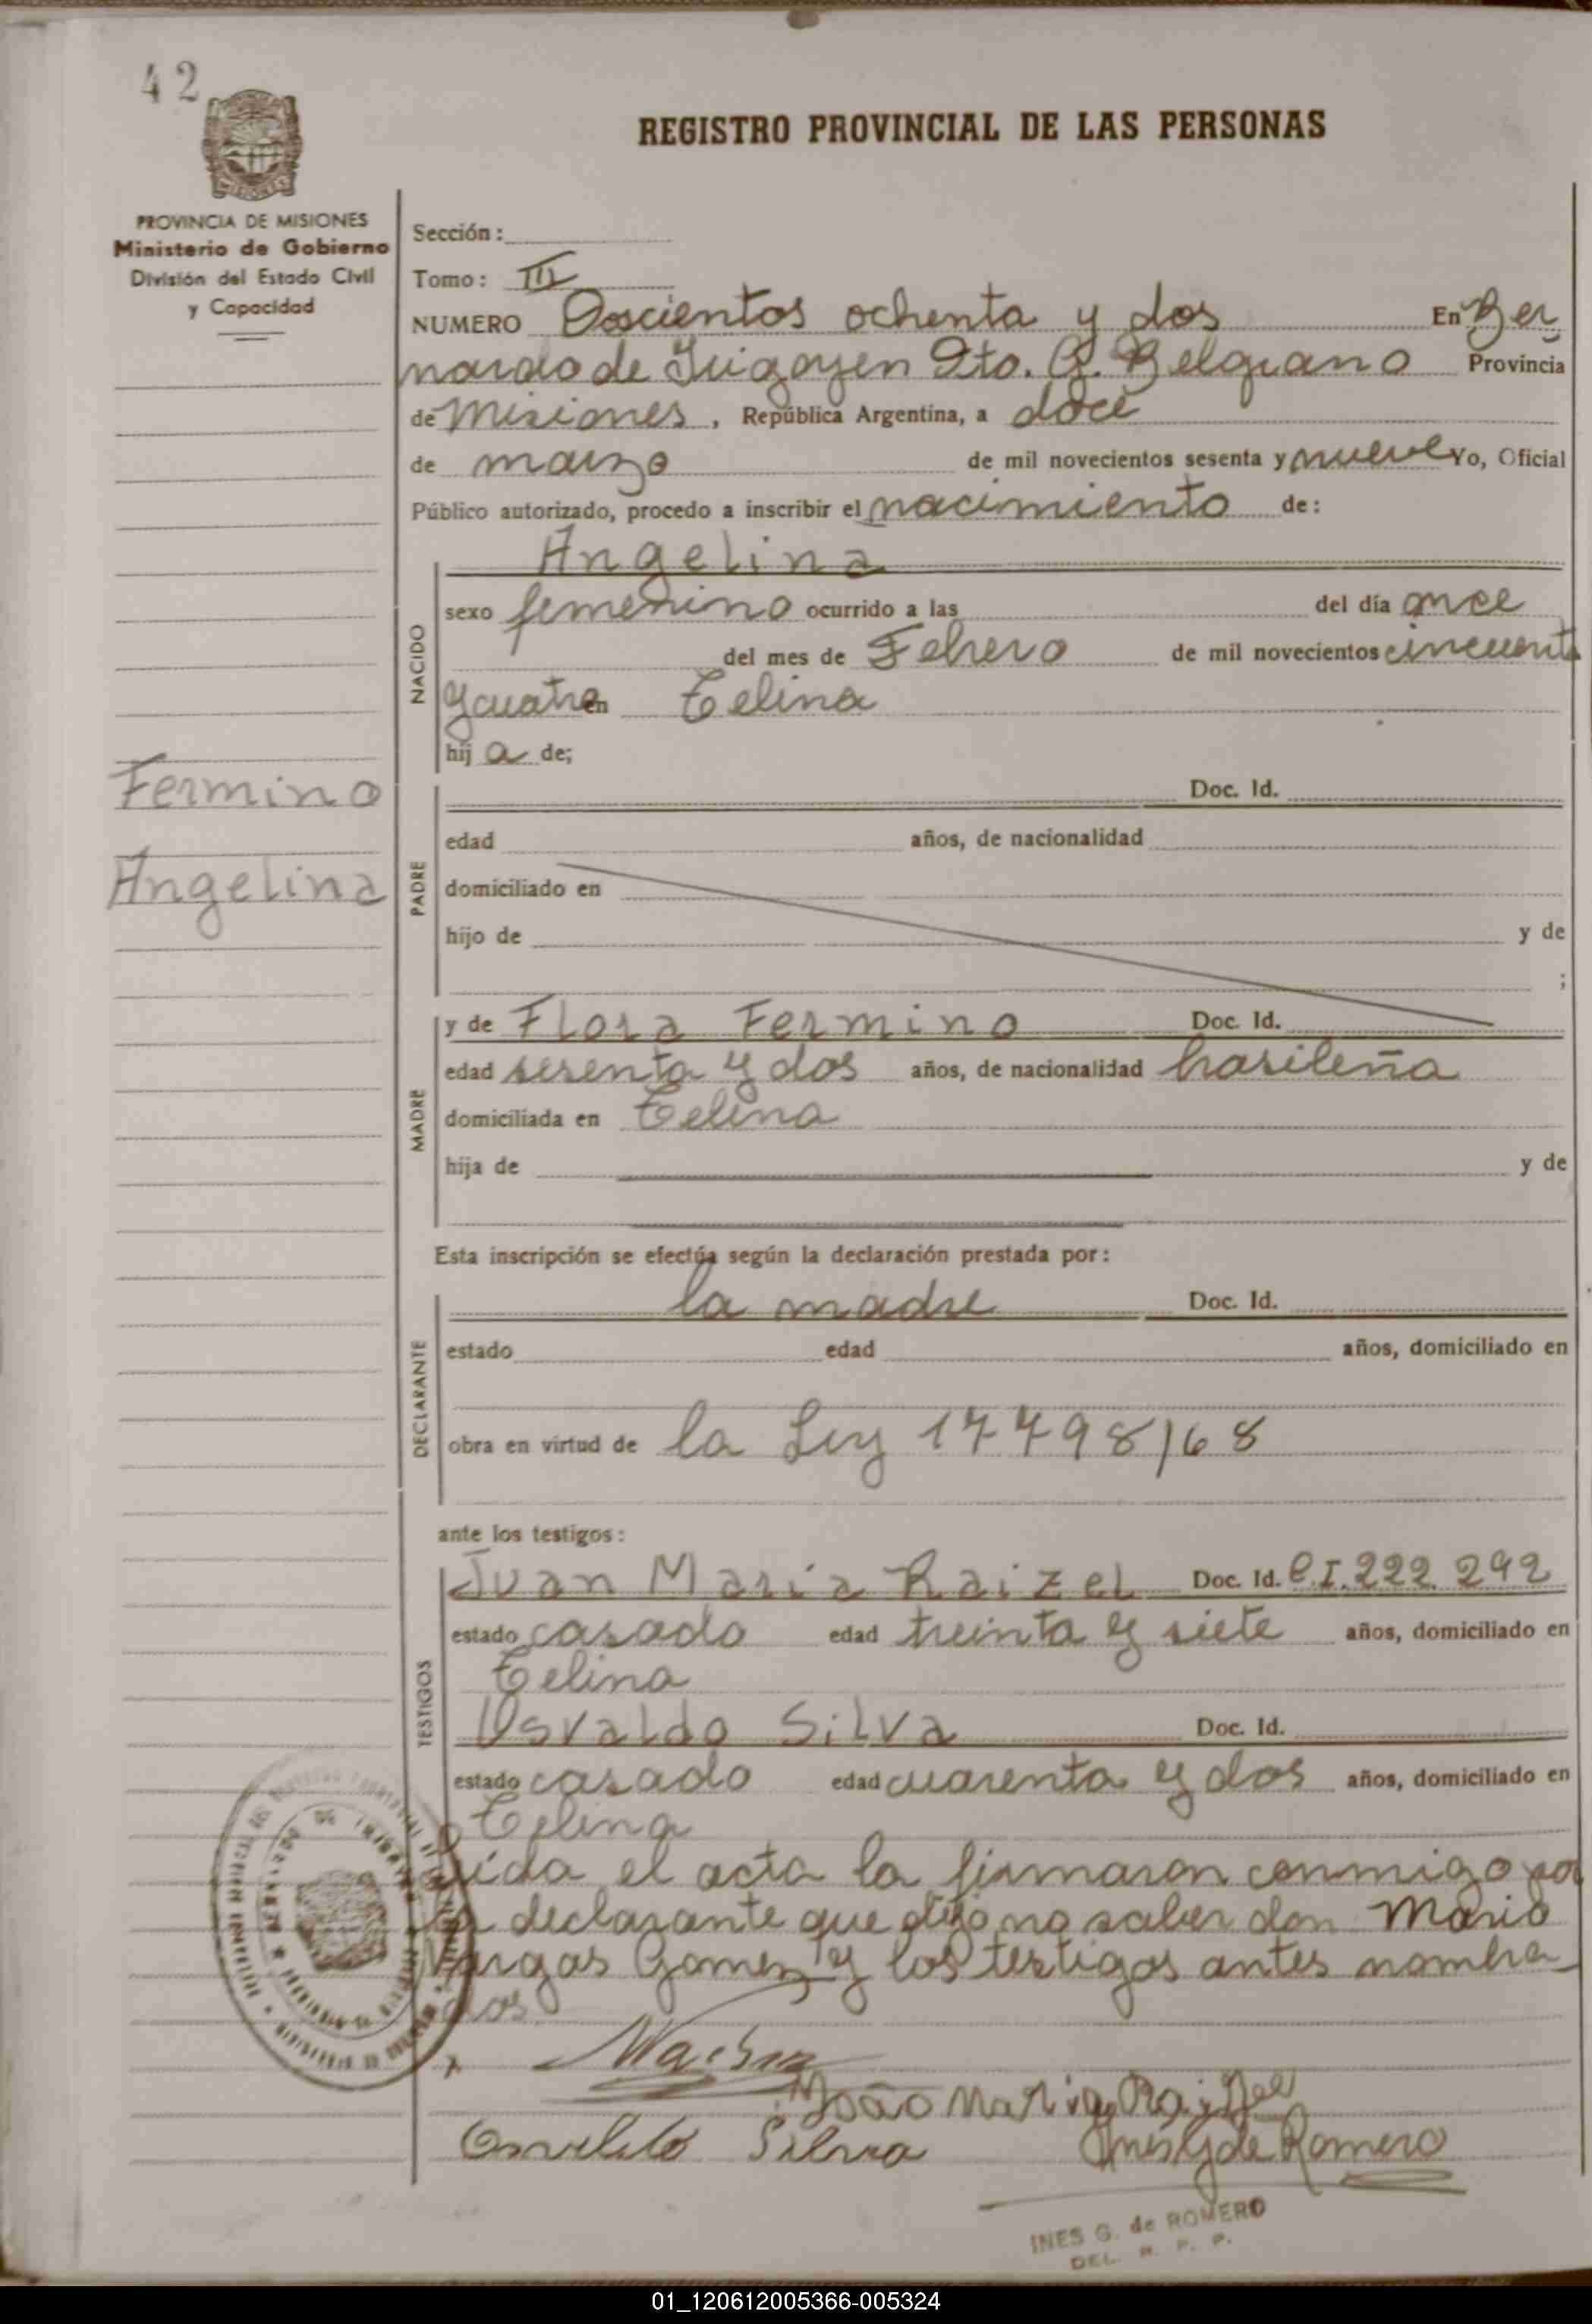 42
REGISTRO PROVINCIAL DE LAS PERSONAS
PROVINCIA DE MISIONES
Ministerio de Gobierno
División del Estado Civil
y Capacidad
Sección:
Tomo: III
NUMERO Doscientos ochenta y dos En Ber
nardo de Irigoyen Dto. G. Belgrano Provincia
de Misiones, República Argentina, a doce
de marzo de mil novecientos sesenta y nueve Yo, Oficial
Público autorizado, procedo a inscribir el nacimiento de:
Angelina
NACIDO
sexo femenino ocurrido a las del día once
del mes de Febrero de mil novecientos cincuenta
y cuatro en Celina
hij a de;
Fermino
Angelina
PADRE
Doc. Id.
edad años, de nacionalidad
domiciliado en
hijo de y de
;
MADRE
y de Flora Fermino Doc. Id.
edad sesenta y dos años, de nacionalidad brasileña
domiciliada en Celina
hija de y de
Esta inscripción se efectúa según la declaración prestada por:
DECLARANTE
la madre Doc. Id.
estado edad años, domiciliado en
obra en virtud de la Ley 17798/68
ante los testigos:
TESTIGOS
Juan Maria Raizel Doc. Id. C.I. 222.292
estado casado edad treinta y siete años, domiciliado en
Celina
Osvaldo Silva Doc. Id.
estado casado edad cuarenta y dos años, domiciliado en
Celina
el acta la firmaron conmigo por
la declarante que dijo no saber don Mario
Vargas Gomez y los testigos antes nombra
dos
João Maria Raizel
Osvaldo Silva Ines G de Romero
INES G. de ROMERO
DEL. R. P. P.
01_120612005366-005324